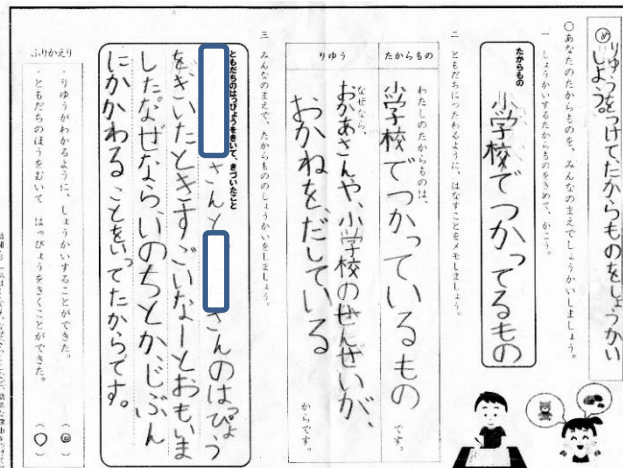 め りゆうをつけて、たからものをしょうかい
しよう。
○あなたのたからものを、みんなのまえでしょうかいしましょう。
一 しょうかいするたからものをきめて、かこう。
たからもの
小学校でつかってるもの
二 ともだちにつたわるように、はなすことをメモしましょう。
たからもの
わたしのたからものは、
小学校でつかっているもの
です。
りゆう
なぜなら、
おかあさんや、小学校のせんせいが、
おかねを、だしている
からです。
三 みんなのまえで、たからもののしょうかいをしましょう。
ともだちのはっぴょうをきいて、きづいたこと
さんと さんのはっぴょう
をきいたときすごいなーとおもいま
したなぜなら、いのちとか、じぶん
にかかわることをいってたからです。
ふりかえり
・りゆうがわかるように、しょうかいすることができた。(◎)
・ともだちのほうをむいて はっぴょうをきくことができた。(○)